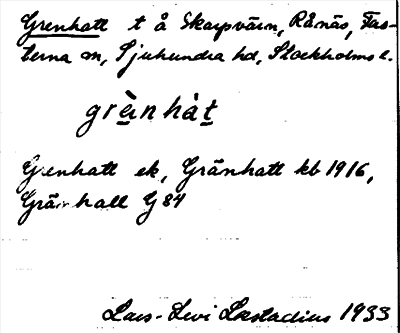 Grenhatt t å Skarpvärn, Rånäs, Fas-
terna sn, Sjuhundra hd, Stockholms l.
grènhàt
Grenhatt ek, Gränhatt kb 1916,
Gränhall G 84
Lars-Levi Læstadius 1933